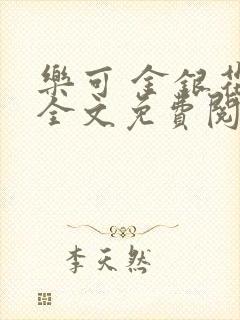 樂可 金銀花
全文免費閱
李天然